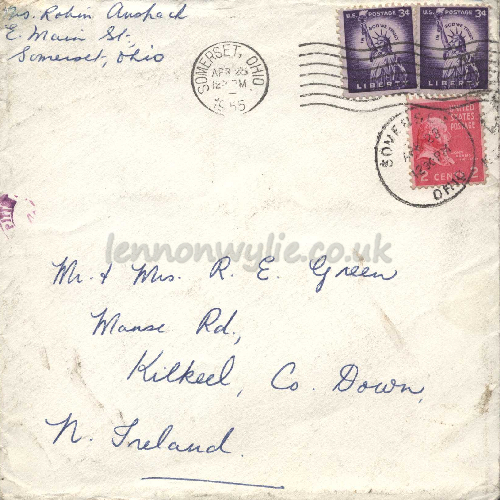 Robin Anspach
E. Main St.,
Somerset, Ohio
SOMERSET, OHIO
APR 28
12 PM
1955
U.S. POSTAGE 3¢
IN GOD WE TRUST
LIBERTY
U.S. POSTAGE 3¢
IN GOD WE TRUST
LIBERTY
UNITED
STATES
POSTAGE
2 CENTS 2
SOMERSET
OHIO
lennonwylie.co.uk
Mr. & Mrs. R. E. Green
Manse Rd.,
Kilkeel, Co. Down,
N. Ireland.